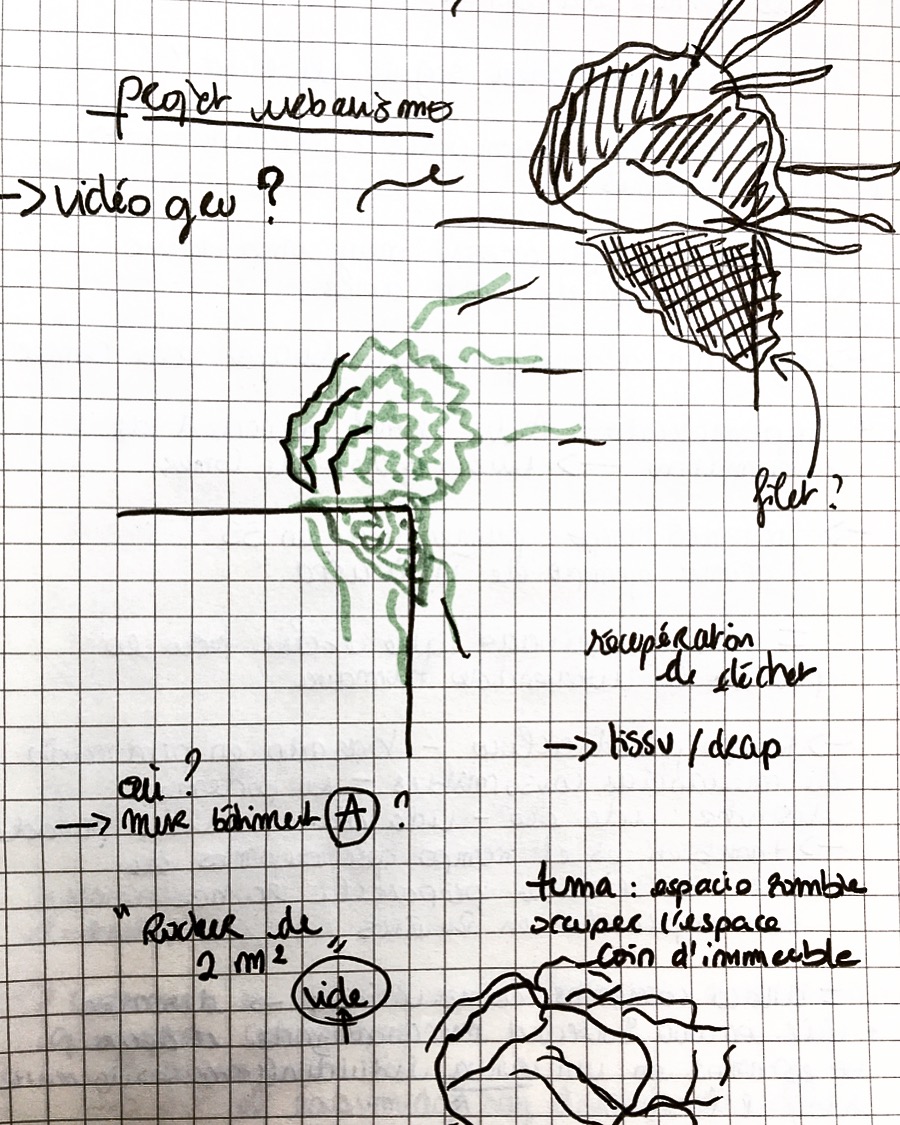 projet urbanisme
→ vidéo geu ?
filet ?
recupération
de déchet
→ tissu / drap
où ?
→ mur bâtiment A ?
tema : espacio
occuper l'espace
coin d'immeuble
" Rocher de
2 m² "
vide